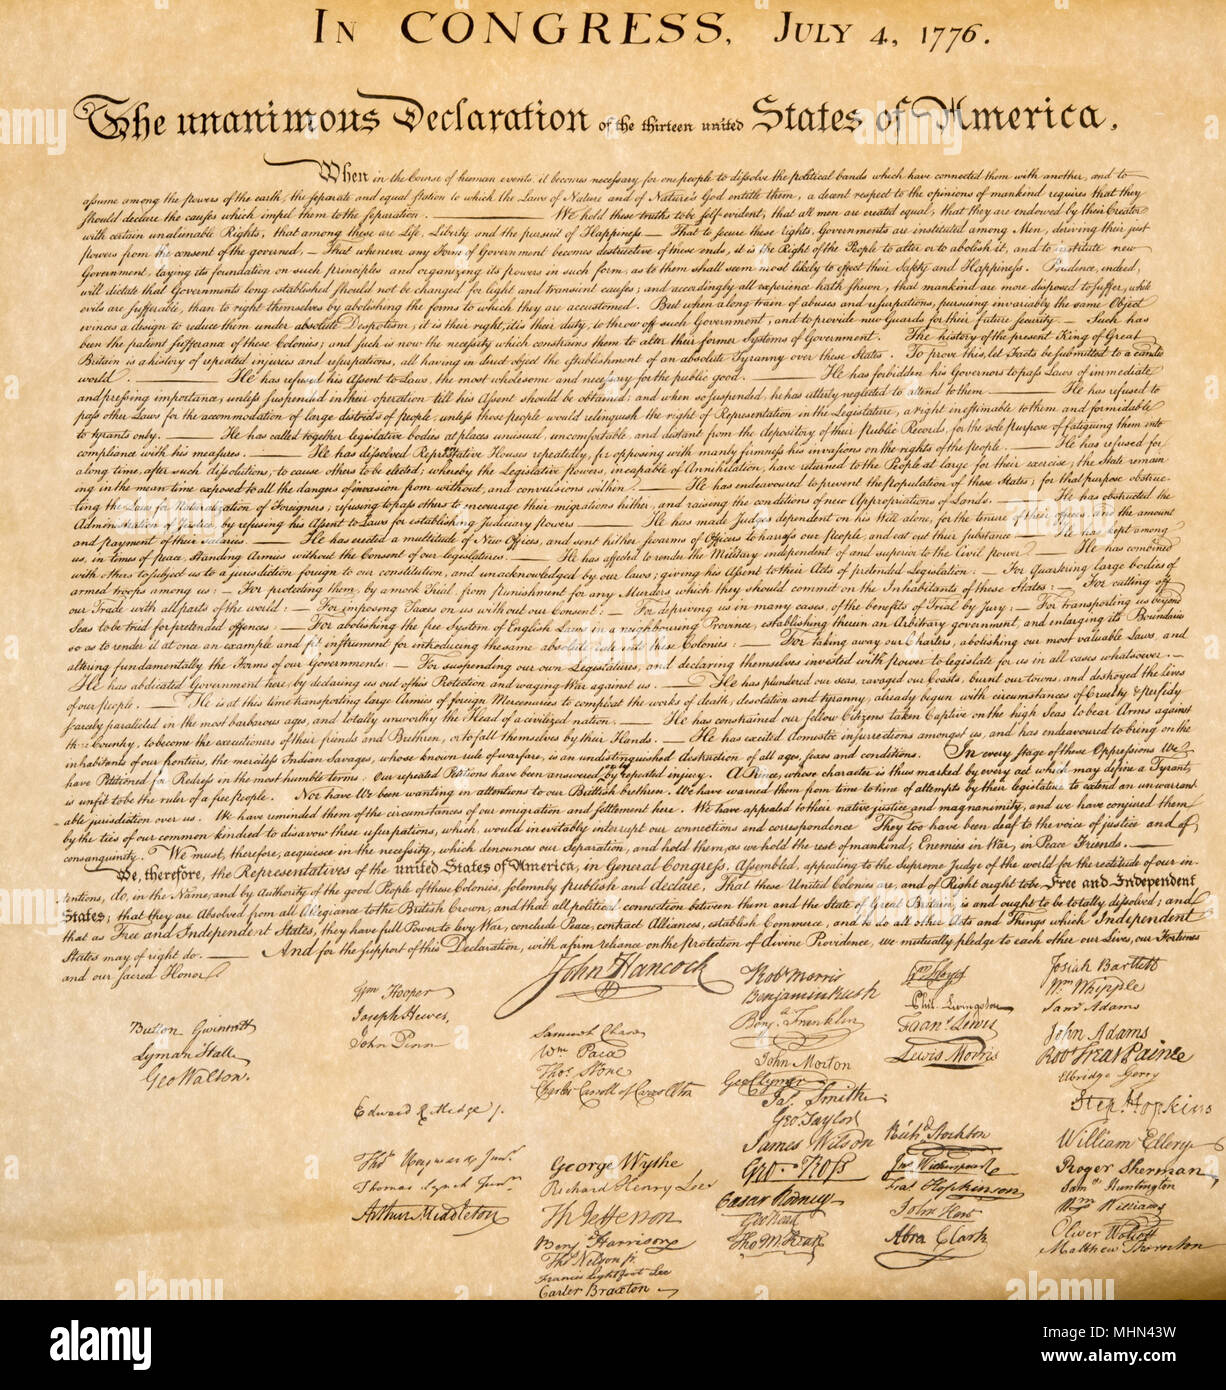 In CONGRESS, July 4, 1776.
The unanimous Declaration of the thirteen united States of America,
When in the Course of human events, it becomes necessary for one people to dissolve the political bands which have connected them with another, and to
assume among the powers of the earth, the separate and equal station to which the Laws of Nature and of Nature's God entitle them, a decent respect to the opinions of mankind requires that they
should declare the causes which impel them to the separation. — We hold these truths to be self-evident, that all men are created equal, that they are endowed by their Creator
with certain unalienable Rights, that among these are Life, Liberty and the pursuit of Happiness — That to secure these rights, Governments are instituted among Men, deriving their just
powers from the consent of the governed, — That whenever any Form of Government becomes destructive of these ends, it is the Right of the People to alter or to abolish it, and to institute new
Government, laying its foundation on such principles and organizing its powers in such form, as to them shall seem most likely to effect their Safety and Happiness. Prudence, indeed,
will dictate that Governments long established should not be changed for light and transient causes; and accordingly all experience hath shewn, that mankind are more disposed to suffer, while
evils are sufferable, than to right themselves by abolishing the forms to which they are accustomed. But when a long train of abuses and usurpations, pursuing invariably the same Object
evinces a design to reduce them under absolute Despotism, it is their right, it is their duty, to throw off such Government, and to provide new Guards for their future security. — Such has
been the patient sufferance of these Colonies; and such is now the necessity which constrains them to alter their former Systems of Government. The history of the present King of Great
Britain is a history of repeated injuries and usurpations, all having in direct object the establishment of an absolute Tyranny over these States. To prove this, let Facts be submitted to a candid
world. — He has refused his Assent to Laws, the most wholesome and necessary for the public good. — He has forbidden his Governors to pass Laws of immediate
and pressing importance, unless suspended in their operation till his Assent should be obtained; and when so suspended, he has utterly neglected to attend to them — He has refused to
pass other Laws for the accommodation of large districts of people, unless those people would relinquish the right of Representation in the Legislature, a right inestimable to them and formidable
to tyrants only. — He has called together legislative bodies at places unusual, uncomfortable, and distant from the depository of their Public Records, for the sole purpose of fatiguing them into
compliance with his measures. — He has dissolved Representative Houses repeatedly, for opposing with manly firmness his invasions on the rights of the people. — He has refused for
a long time, after such dissolutions, to cause others to be elected; whereby the Legislative powers, incapable of Annihilation, have returned to the People at large for their exercise; the State remain
ing in the mean time exposed to all the dangers of invasion from without, and convulsions within. — He has endeavoured to prevent the population of these States; for that purpose obstruc-
ting the Laws for Naturalization of Foreigners; refusing to pass others to encourage their migrations hither, and raising the conditions of new Appropriations of Lands. — He has obstructed the
Administration of Justice, by refusing his Assent to Laws for establishing Judiciary powers — He has made Judges dependent on his Will alone, for the tenure of their offices, and the amount
and payment of their salaries. — He has erected a multitude of New Offices, and sent hither swarms of Officers to harrass our people, and eat out their substance — He has kept among
us, in times of peace, Standing Armies without the Consent of our legislatures. — He has affected to render the Military independent of and superior to the Civil power — He has combined
with others to subject us to a jurisdiction foreign to our constitution, and unacknowledged by our laws; giving his Assent to their Acts of pretended Legislation: — For Quartering large bodies of
armed troops among us: — For protecting them, by a mock Trial, from punishment for any Murders which they should commit on the Inhabitants of these States: — For cutting off
our Trade with all parts of the world: — For imposing Taxes on us without our Consent: — For depriving us in many cases, of the benefits of Trial by Jury: — For transporting us beyond
Seas to be tried for pretended offences: — For abolishing the free System of English Laws in a neighbouring Province, establishing therein an Arbitrary government, and enlarging its Boundaries
so as to render it at once an example and fit instrument for introducing the same absolute rule into these Colonies: — For taking away our Charters, abolishing our most valuable Laws, and
altering fundamentally the Forms of our Governments: — For suspending our own Legislatures, and declaring themselves invested with power to legislate for us in all cases whatsoever. —
He has abdicated Government here, by declaring us out of his Protection and waging War against us. — He has plundered our seas, ravaged our Coasts, burnt our towns, and destroyed the lives
of our people. — He is at this time transporting large Armies of foreign Mercenaries to compleat the works of death, desolation and tyranny, already begun with circumstances of Cruelty & perfidy
scarcely paralleled in the most barbarous ages, and totally unworthy the Head of a civilized nation. — He has constrained our fellow Citizens taken Captive on the high Seas to bear Arms against
their Country, to become the executioners of their friends and Brethren, or to fall themselves by their Hands. — He has excited domestic insurrections amongst us, and has endeavoured to bring on the
inhabitants of our frontiers, the merciless Indian Savages, whose known rule of warfare, is an undistinguished destruction of all ages, sexes and conditions. In every stage of these Oppressions We
have Petitioned for Redress in the most humble terms: Our repeated Petitions have been answered only by repeated injury. A Prince, whose character is thus marked by every act which may define a Tyrant,
is unfit to be the ruler of a free people. Nor have We been wanting in attentions to our Brittish brethren. We have warned them from time to time of attempts by their legislature to extend an unwarrant
able jurisdiction over us. We have reminded them of the circumstances of our emigration and settlement here. We have appealed to their native justice and magnanimity, and we have conjured them
by the ties of our common kindred to disavow these usurpations, which, would inevitably interrupt our connections and correspondence They too have been deaf to the voice of justice and of
consanguinity. We must, therefore, acquiesce in the necessity, which denounces our Separation, and hold them, as we hold the rest of mankind, Enemies in War, in Peace Friends. —
We, therefore, the Representatives of the united States of America, in General Congress, Assembled, appealing to the Supreme Judge of the world for the rectitude of our in-
tentions, do, in the Name, and by Authority of the good People of these Colonies, solemnly publish and declare, That these United Colonies are, and of Right ought to be Free and Independent
States; that they are Absolved from all Allegiance to the British Crown, and that all political connection between them and the State of Great Britain, is and ought to be totally dissolved; and
that as Free and Independent States, they have full Power to levy War, conclude Peace, contract Alliances, establish Commerce, and to do all other Acts and Things which Independent
States may of right do. — And for the support of this Declaration, with a firm reliance on the protection of divine Providence, we mutually pledge to each other our Lives, our Fortunes
and our sacred Honor.
Button Gwinnett
Lyman Hall
Geo Walton.
Wm Hooper
Joseph Hewes,
John Penn
Edward Rutledge Jr.
Thos Heyward Junr.
Thomas Lynch Junr.
Arthur Middleton
John Hancock
Samuel Chase
Wm Paca
Thos Stone
Charles Carroll of Carrollton
George Wythe
Richard Henry Lee
Th Jefferson
Benj Harrison
Thos Nelson jr.
Francis Lightfoot Lee
Carter Braxton
Robt Morris
Benjamin Rush
Benj. Franklin
John Morton
Geo Clymer
Jas. Smith
Geo. Taylor
James Wilson
Geo. Ross
Caesar Rodney
Geo Read
Tho M:Kean
Wm Floyd
Phil. Livingston
Frans. Lewis
Lewis Morris
Richd. Stockton
Jno Witherspoon
Fras. Hopkinson
John Hart
Abra Clark
Josiah Bartlett
Wm Whipple
Saml Adams
John Adams
Robt Treat Paine
Elbridge Gerry
Step. Hopkins
William Ellery
Roger Sherman
Saml Huntington
Wm Williams
Oliver Wolcott
Matthew Thornton
alamy
alamy stock photo
MHN43W
www.alamy.com